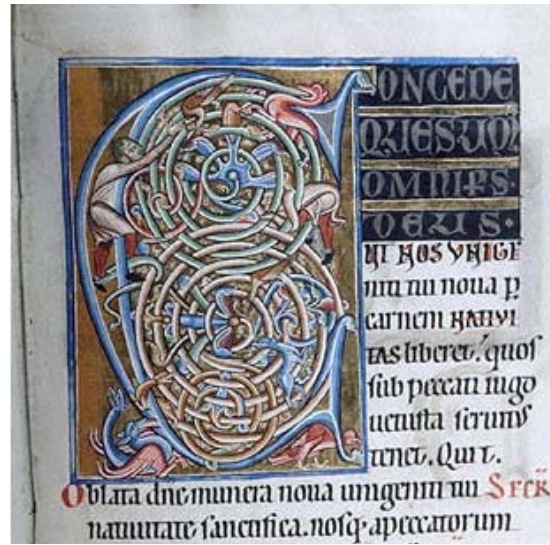 CONCEDE
QUESUM
OMNIPS.
DEUS.
UT NOS UNIGE
niti tui noua ꝑ
carnem NATIVI
TAS liberet. quos
sub peccati iugo
uetusta seruit᷒
tenet. Qui t.
Oblata dñe munera noua unigeniti tui SECR̄
natiuitate sanctifica. nosq; apeccatorum